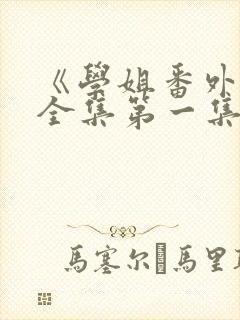 《學姐番外
全集第一集
馬塞尔·馬里